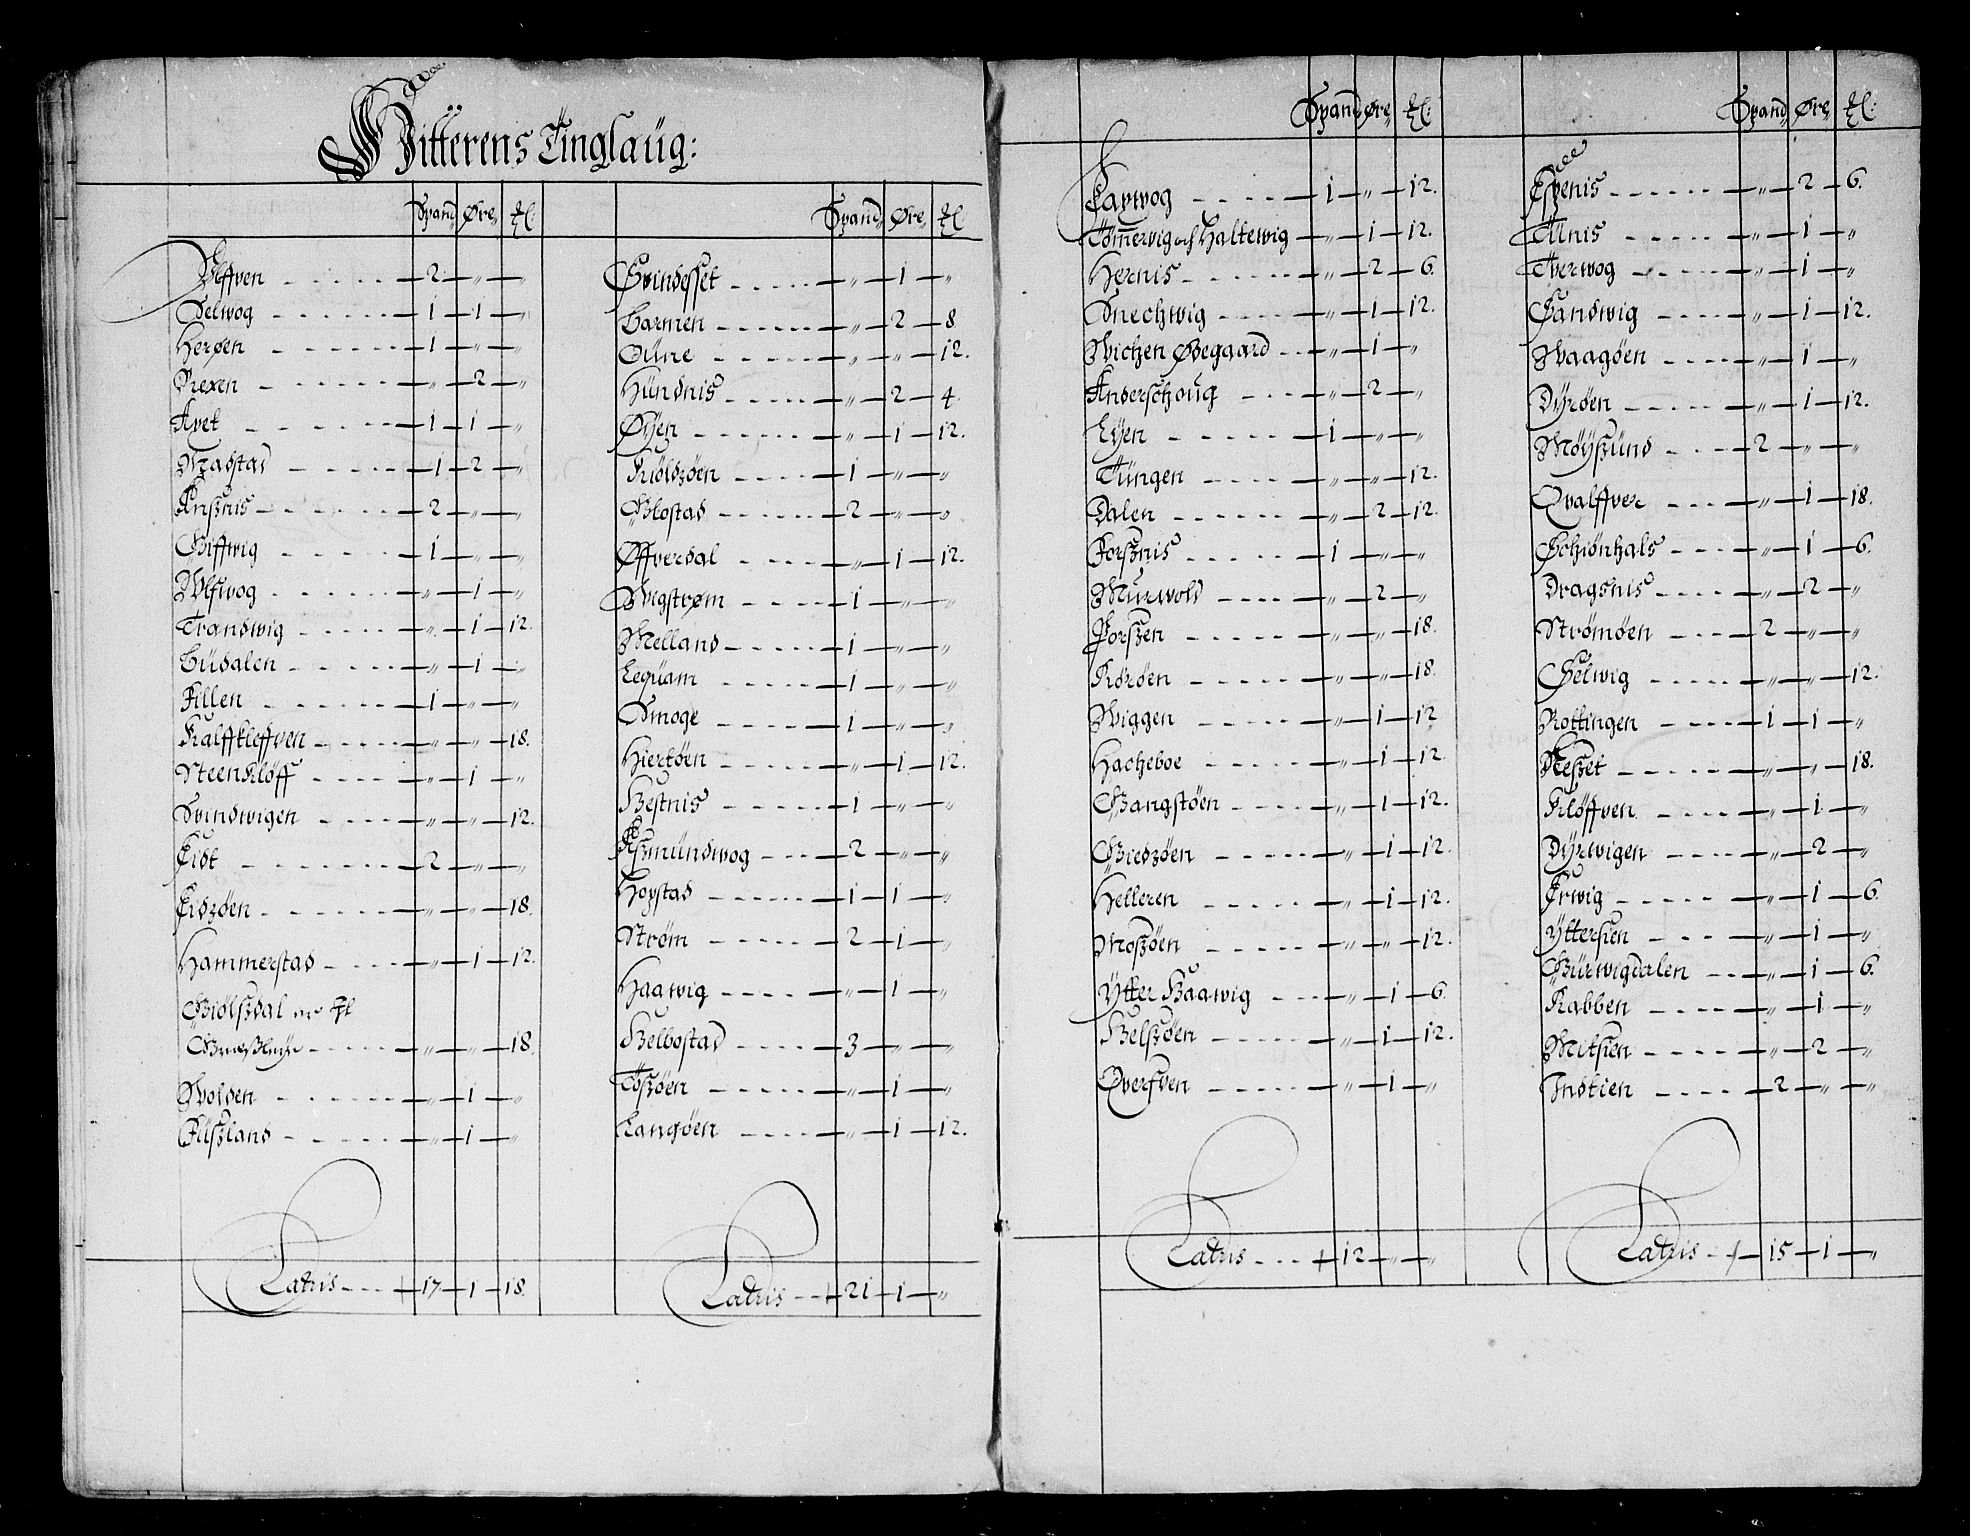 Hitterens Tinglaüg:
Spand Øre
Ulffven 2 „ „
Selwog 1 1 „
Herøen 1 „ „
Rexen „ 2 „
Avet 1 1 „
Madstad 1 2 „
Anßnis 2 „ „
Giffwig 1 „ „
Ulfwog „ 1 „
Trandwig „ 1 12.
Büdalen „ 1 „
Fillen 1 „ „
Kalffkleffven „ „ 18.
Steenkløff „ 1 „
Svindwigen „ „ 12.
Eidt 2 „ „
Eidzøen „ „ 18.
Hammerstad „ 1 12.
Giølßdal
„ „ 18.
Wolden „ 1 „
Füßland „ 1 „
Latris 17 1 18.
Spand Øre
Svindsset „ 1 „
Barmen „ 2 8
Aüne „ „ 12.
Hündnis „ 2 4.
Øÿen „ 1 12.
Kiøldzøen 1 „ „
Blostad 2 „ „
Øffverdal „ 1 12.
Wigstrøm 1 „ „
Melland 1 „ „
Leqüam 1 „ „
Smoge 1 „ „
Hiertøen „ 1 12.
Bestnis 1 „ „
Aßmündwog 2 „ „
Hopstad 1 1 „
Strøm 2 1 „
Hagwig „ 1 „
Belbostad 3 „ „
Toßøen „ 1 „
Langøen „ 1 12.
Latris 21 1 „
Spand Øre
Laxwog 1 „ 12.
Tømervig och Haltewig „ 1 12.
Hernis „ 2 6.
Snechwig „ 1 12.
Wichen Ødegaard „ 1 „
Anderschoug „ 2 „
Eÿen 1 „ „
Tüngen „ „ 12.
Dalen „ 2 12.
Forßnis 1 „ „
Mürwold „ 2 „
Porßen „ „ 18.
Korøen „ „ 18.
Wiggen „ 1 12
Hacheboe „ 1 12.
Bangstøen „ 1 12.
Giedzøen „ 1 12.
Helleren „ 1 12.
Moßøen „ „ 12.
Ÿtter Baawig „ 1 6.
Belßøen „ 1 12.
Qverfven „ 1 „
Latris 12 „ „
Spand Øre
Espenis „ 2 6.
Ulnis „ 1 „
Tverwog „ 1 „
Sandwig „ 1 12.
Waagøen „ 1 „
Dÿrøen „ 1 12.
Møÿßünd 2 „ „
Qvalffver „ 1 18.
Schiønhals „ 1 6.
Dragsnis „ 2 „
Strømøen 2 „ „
Selwig „ „ 12.
Rottingen 1 1 „
Neßet „ „ 18.
Kløffven „ 1 „
Dÿrwigen „ 2 „
Erwig „ 1 6.
Ÿttersien „ 1 „
Bürwigdalen „ 1 6.
Rabben „ 1 „
Mitsien „ 2 „
Indtien 2 „ „
Latris 15 1 „